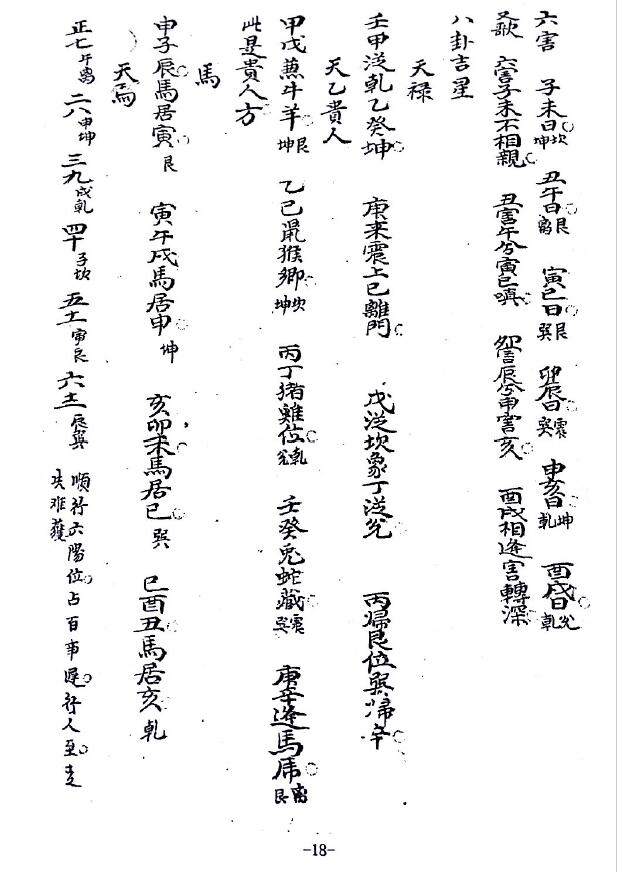 六害　子未日坎坤　丑午日艮離　寅巳日艮巽　卯辰日震巽　申亥日坤乾　酉戌日兌乾
又歌　六害子未不相親　丑害午兮寅巳嗔　卯害辰兮申害亥　酉戌相逢害轉深
八卦吉星
天禄
壬甲從乾乙癸坤　庚來震上巳離門　戊從坎象丁從兌　丙歸艮位巽歸辛
天乙貴人
甲戊蒹牛羊艮坤　乙己鼠猴鄉坎坤　丙丁猪雞位乾兌　壬癸兎蛇藏震巽　庚辛逢馬虎離艮
此是貴人方
馬
申子辰馬居寅艮　寅午戌馬居申坤　亥卯未馬居巳巽　巳酉丑馬居亥乾
天馬
正七午离　二八申坤　三九戌乾　四十子坎　五十一寅艮　六十二辰巽　順行六陽位占百事遲行人至走失难獲
-18-